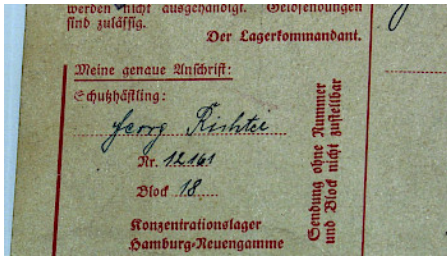 werden nicht ausgehändigt. Geldsendungen
sind zulässig.
Der Lagerkommandant.
Meine genaue Anschrift:
Schutzhäftling:
Georg Richter
Nr. 12161
Block 18
Konzentrationslager
Hamburg-Neuengamme
Sendung ohne Nummer
und Block nicht zustellbar